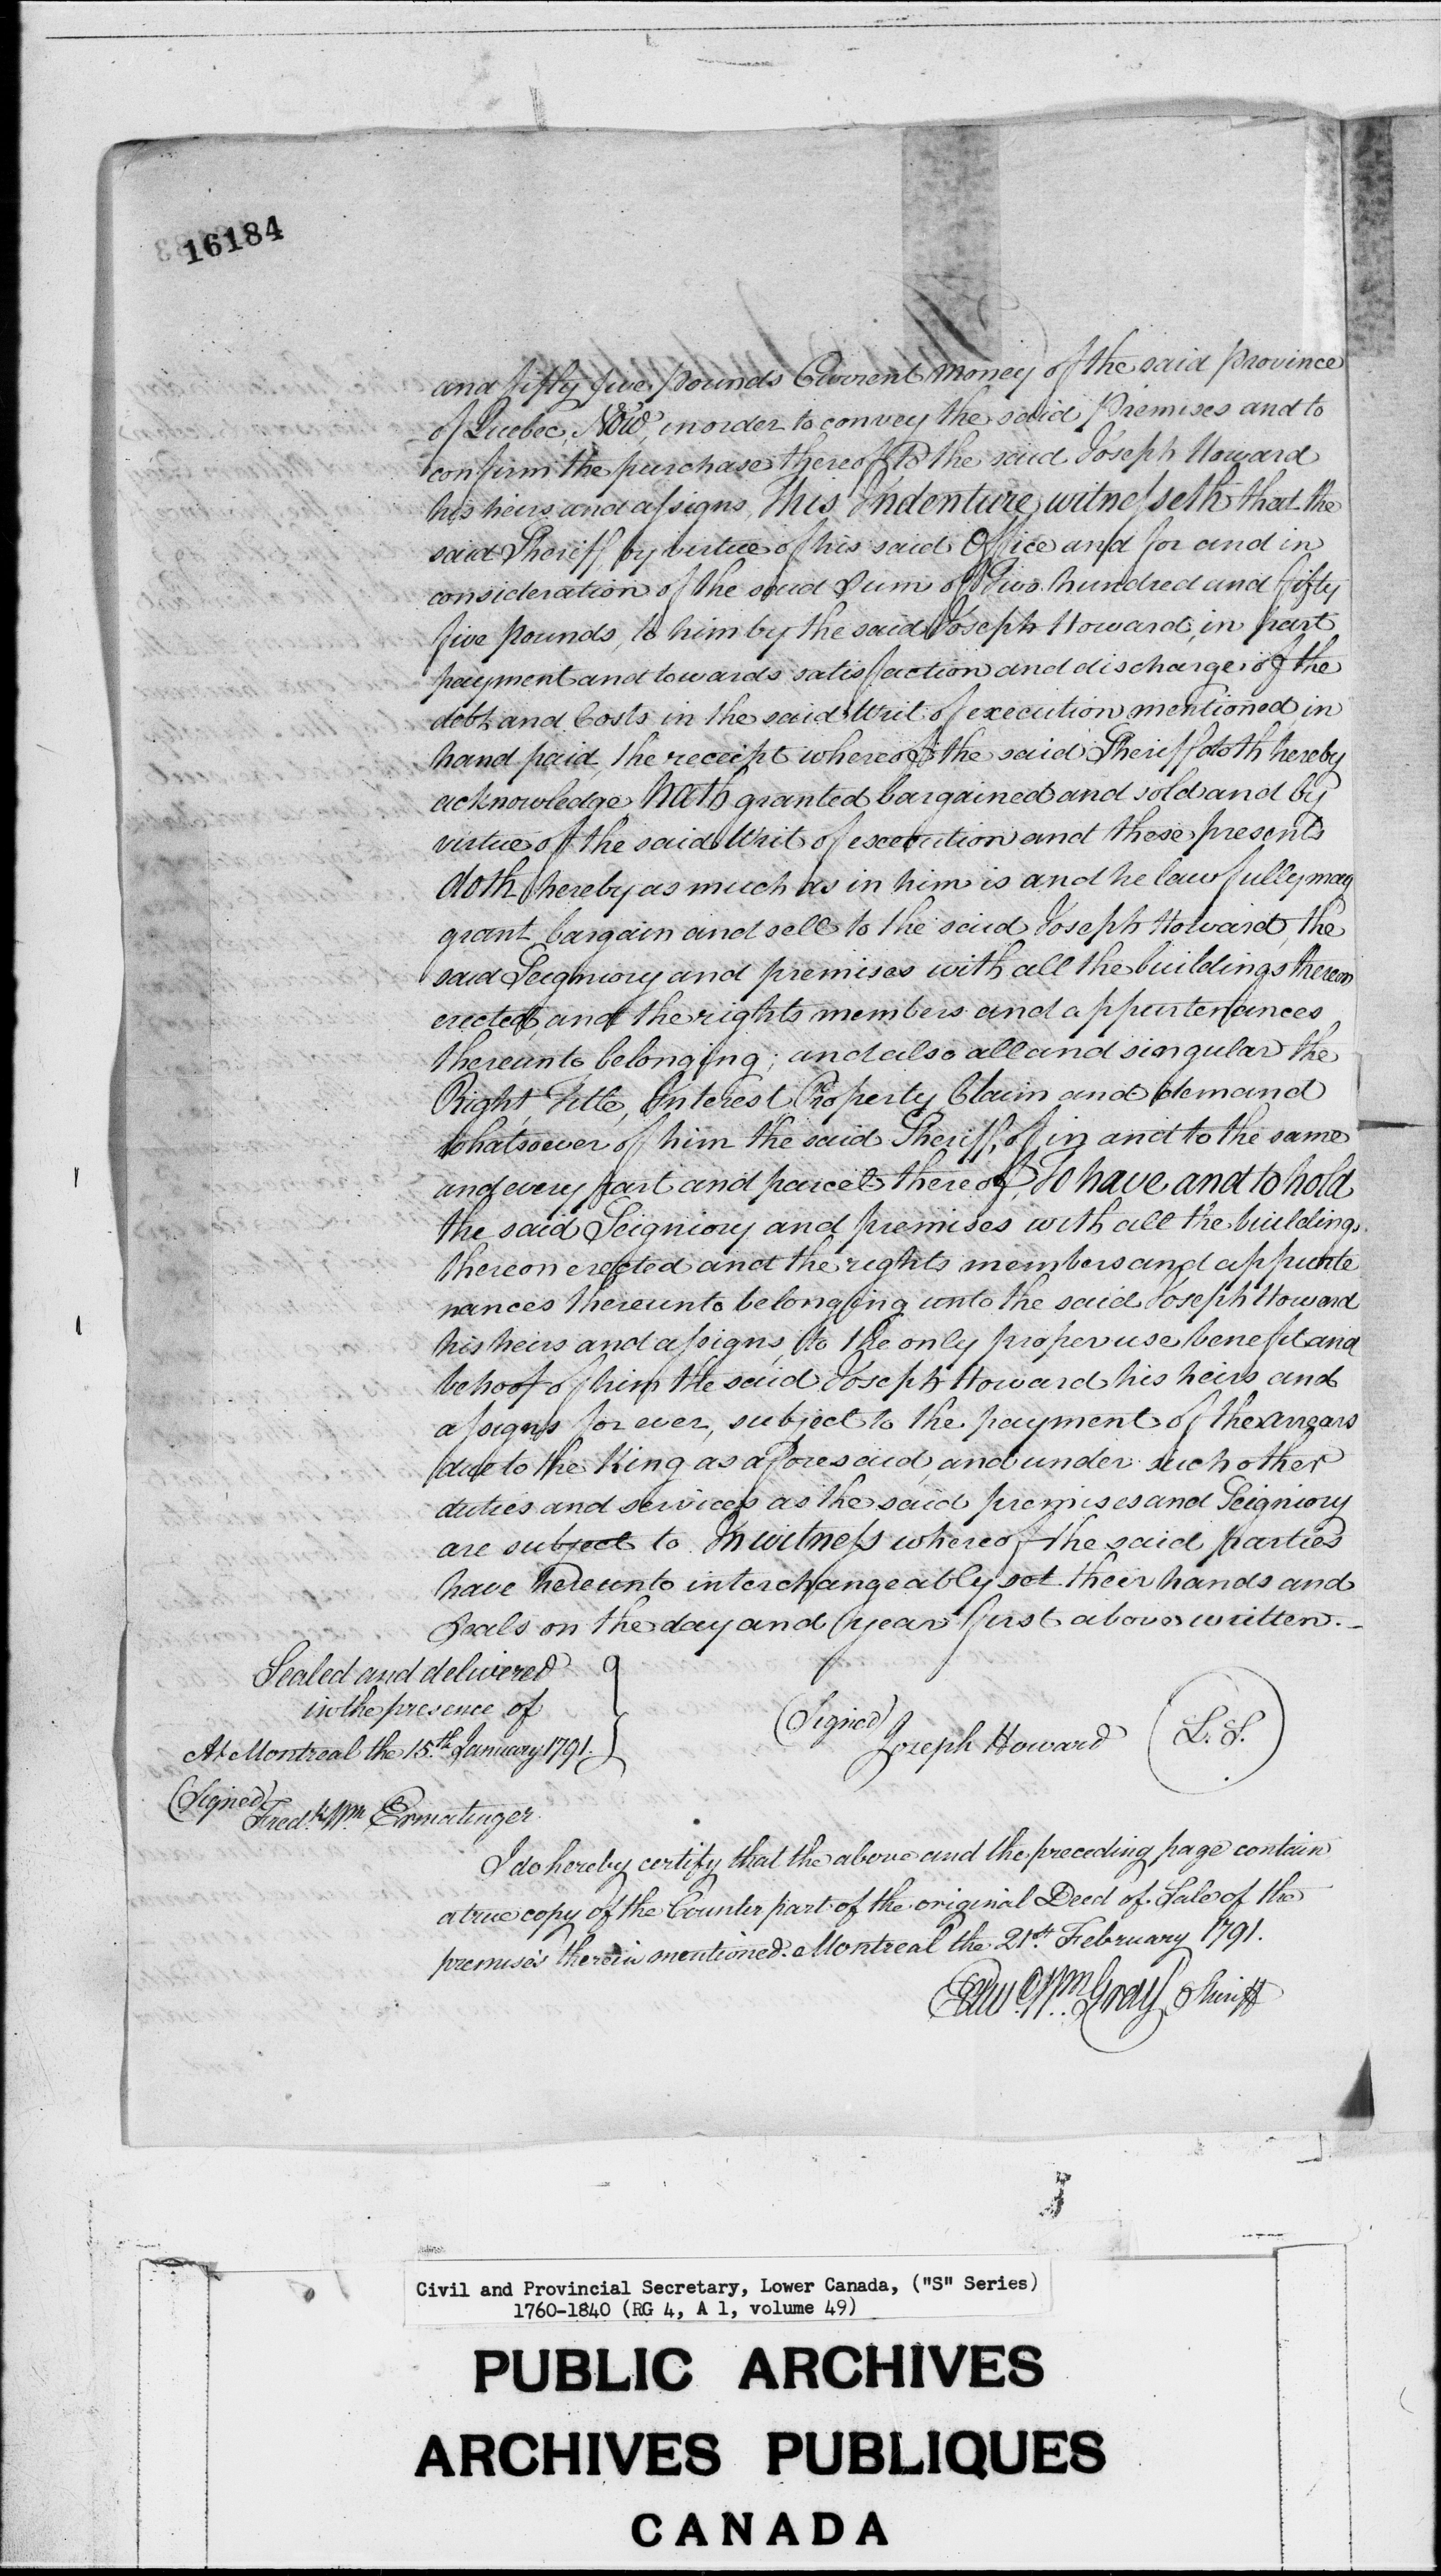 16184
and fifty five pounds Current money of the said province
of Quebec, Now, in order to convey the said Premises and to
confirm the purchase thereof to the said Joseph Howard
his heirs and assigns, This Indenture witnesseth that the
said Sheriff by virtue of his said Office and for and in
consideration of the said Sum of Two hundred and fifty
five pounds, to him by the said Joseph Howard, in part
payment and towards satisfaction and discharge of the
debt and Costs in the said Writ of execution mentioned in
hand paid, the receipt whereof the said Sheriff doth hereby
acknowledge, hath granted bargained and sold and by
virtue of the said Writ of execution and these presents
doth hereby as much as in him is and he lawfully may
grant bargain and sell to the said Joseph Howard, the
said Seigniory and premises with all the buildings thereon
erected, and the rights members and appurtenances
thereunto belonging; and also all and singular the
Right Title, Interest Property Claim and demand
whatsoever of him the said Sheriff, of in and to the same
and every part and parcel thereof, To have and to hold
the said Seigniory and premises with all the buildings
thereon erected and the rights members and appurte
nances thereunto belonging unto the said Joseph Howard
his heirs and assigns, to the only proper use benefit and
behoof of him the said Joseph Howard his heirs and
assigns for ever, subject to the payment of the arrears
due to the King as aforesaid, and under such other
duties and services as the said premises and Seigniory
are subject to. In witness whereof the said parties
have hereunto interchangeably set their hands and
Seals on the day and year first above written.-
Sealed and delivered
in the presence of
At Montreal the 15.th January 1791.
(Signed) Joseph Howard L.S.
(Signed) Fred.k Wm. Ermatinger
I do hereby certify that the above and the preceding page contain
a true copy of the Counter part of the original Deed of Sale of the
premises therein mentioned. Montreal the 21.st February 1791.
Edw. Wm. Gray Sheriff
Civil and Provincial Secretary, Lower Canada, ("S" Series)
1760-1840 (RG 4, A 1, volume 49)
PUBLIC ARCHIVES
ARCHIVES PUBLIQUES
CANADA